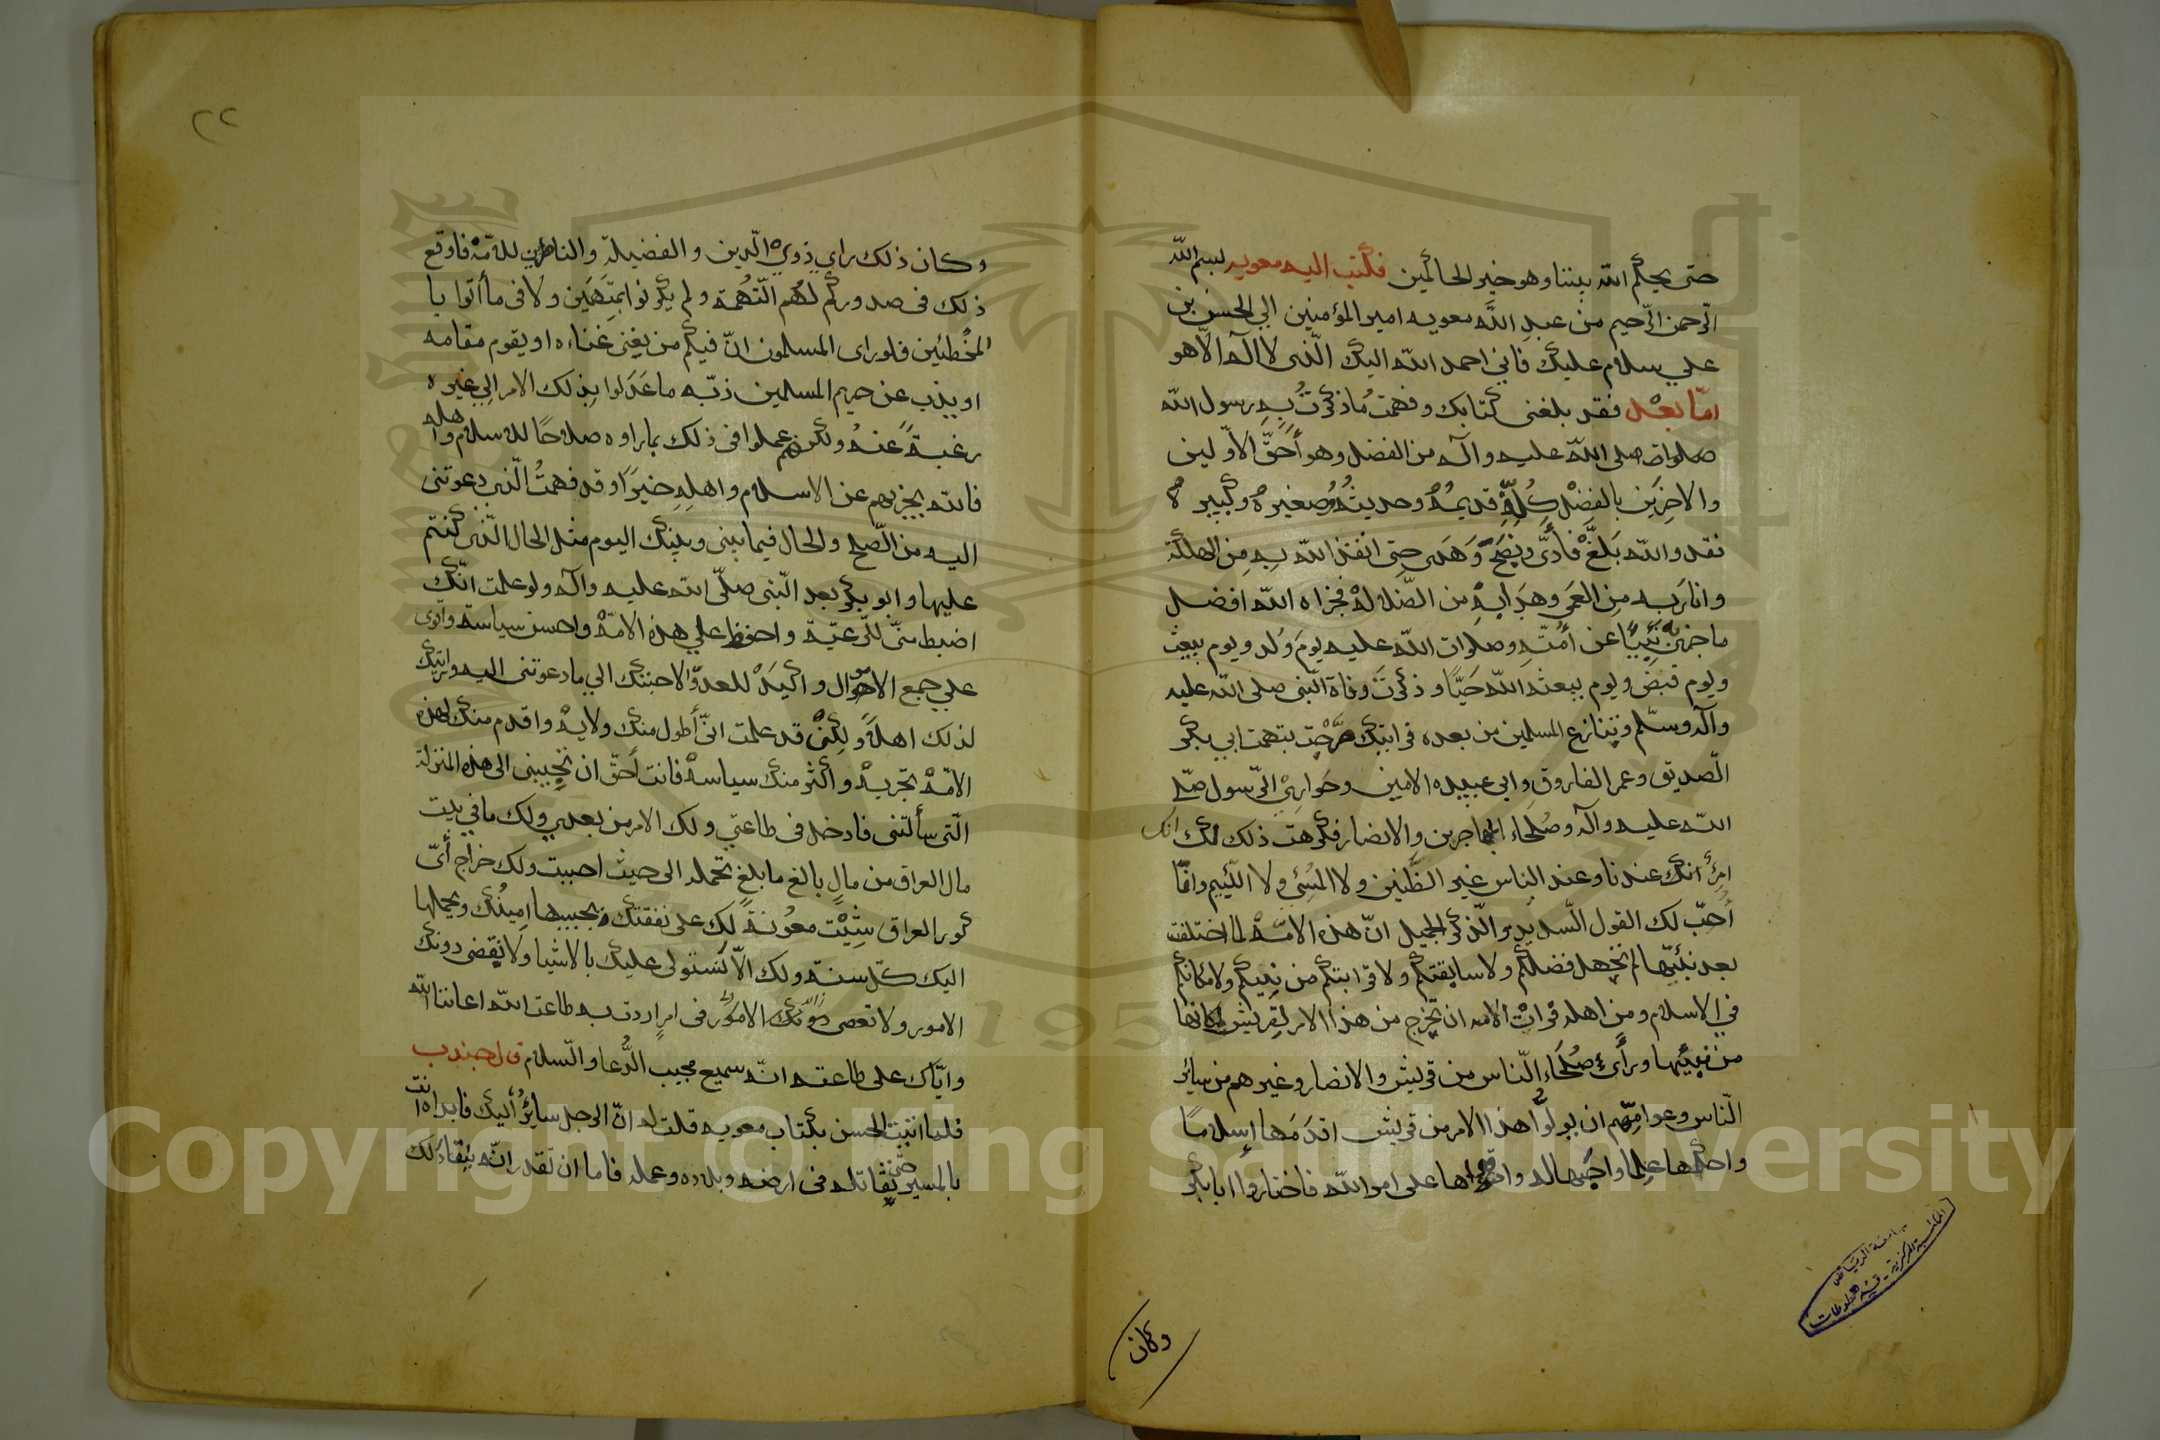 حتى يحكم الله بيننا وهو خير الحاكمين فكتب اليه معويه بسم الله
الرحمن الرّحيم من عبدِ اللّه معويه امير المؤمنين الي الحسن بن
علي سلام عليك فاني احمد اللّه اليك الّذى لا اله الّا هو
امّا بعْد فقد بلغنى كتابك وفهمتُ ماذكرتُ بِهِ رسول الله
صلوات صلى اللّه عليه وآله من الفضل وهو أحَقّ الاوّلين
والاخِرَين بالفِضْل كُلِّهِ قديمُهُ وحديثُهُ وصُغيره وكبيره
فقد واللّه بَلغَّ فأدىَّ ونصَحَ وَهَدى حتى انقذ اللّه بِهِ مِن الهلكة
وانارَ به مِن العَمي وهدَابهِ من الضّلالهْ فجزاه اللّه افضل
ما جزى نَبِيًا عن أمّتهِ وصلوات اللّه عليه يومَ وُلد ويوم يبعث
ويوم قبض ويوم يبعثه اللّه حَيًّا وذكرتَ وفاة النّبى صلى اللّه عليه
وآله وسلّم وتنازع المسلمين من بعده فرايتك صَرَّحْتَ بتهمت ابي بكر
الصّديق وعمر الفاروق وابي عبيده الامين وحَوارِيْ الرّسول صلّى
اللّه عليه وآله وصُلحاء المهاجرين والانصار فكرهت ذلك لك انك
امرُؤ انك عندنا وعند الناس غير الظّنين ولا المُسْئِ ولا اللّئيم وانّا
أُحبّ لك القول السّديد والذّكر الجميل انّ هذه الامّهْ لما اختلفت
بعد نبيّها لم تجهل فضلكم ولا سابقتكم ولا قرابتكم من نبيكم ولا مكانكم
في الاسلام ومن اهله فرأتْ الامه ان تخرج من هذا الامر لقريش لمكانها
من نبيّها ورأى صُلحَاء النّاس من قريش والانصار وغيرهم من سائر
النّاس وعوامّهم ان يولّوا هذا الامر من قريش اقدَمَها إسلامًا
واحكمها علما واحبّها له واقواها على امر اللّه فاختاروا ابا بكر
وكان
٢٢
وكان ذلك راي ذوي الّدين والفضيلة والناظرين للامّهْ فاوقع
ذلك فى صدوركم لهم التّهمة ولم يكونوا بمتّهَمين ولا فى ما أتوا با
لمخطئين فلو راى المسلمون انّ فيكم من يغنى غناءه او يقوم مقامه
او يذب عن حريم المسلمين ذبّه ما عَدَلوا بذلك الامر الي غيره
رغبةً عنهُ ولكنهم عملوا فى ذلك بما راوه صلاحًا للاسلام واهله
فالله يجزيهم عن الاسلام واهلِهِ خيرًا وقد فهمتُ الّذى دعوتنى
اليه من الصّلح والحال فيما بينى وبينك اليوم مثل الحال الّذى كنتم
عليها وابو بكر بعد النّبى صلّى الله عليه وآله ولو علمت انّك
اضبط منّى للرّعيّة واحفظ علي هذه الامّهْ واحسن سياسة واقوى
علي جمع الاموال واكيَدْ للعدوّ لاجبتك الي ما دعوتنى اليه ورايتك
لذلك اهلاً ولكِنّى قد علمت انّى أطول منك ولايهْ واقدم منك لهذه
الامّهْ تجربهْ واكثر منك سياسهْ فانت أحَقّ ان تجيبنى الى هذه المنزلة
الّتى سألتنى فادخل فى طاعتي ولك الامر من بعدي ولك ما في بيت
مال العراق من مالٍ بالغ ما بلغ تحمله الى حيث احببت ولك خراج أىّ
كور العراق شِيْت معُونةً لك على نفقتك يجبيها امِينُك ويحملها
اليك كلّ سنة ولك الاّ نستولى عليك بالاشيا ولا تقضى دونك
الامور ولا تعصى فى امرٍ اردت به طاعت اللّه اعاننا الله
وايّاك على طاعته انّه سميع مجيب الدُّعا والسّلام قال جندب
فلما اتيت الحسن بكتاب معويه قلت له انّ الرجل سائرٌ أليك فابداه انت
بالمسير حتى تقاتله فى ارضه وبلاده وعمله فاما ان تقدر انّه ينقاد لك
جامعة الرياض
المكتبة المركزية - قسم المخطوطات
1957
Copyright © King Saud University